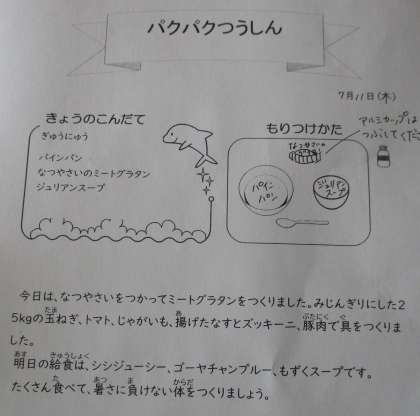 パクパクつうしん
7月11日(木)
きょうのこんだて
ぎゅうにゅう
パインパン
なつやさいのミートグラタン
ジュリアンスープ
もりつけかた
アルミカップは
つぶしてくだ
なつやさいの
パイン
パン
ジュリアン
スープ
今日は、なつやさいをつかってミートグラタンをつくりました。みじんぎりにした2
5kgの玉ねぎ、トマト、じゃがいも、揚げたなすとズッキーニ、豚肉で具をつくりま
した。
明日の給食は、シシジューシー、ゴーヤチャンプルー、もずくスープです。
たくさん食べて、暑さに負けない体をつくりましょう。